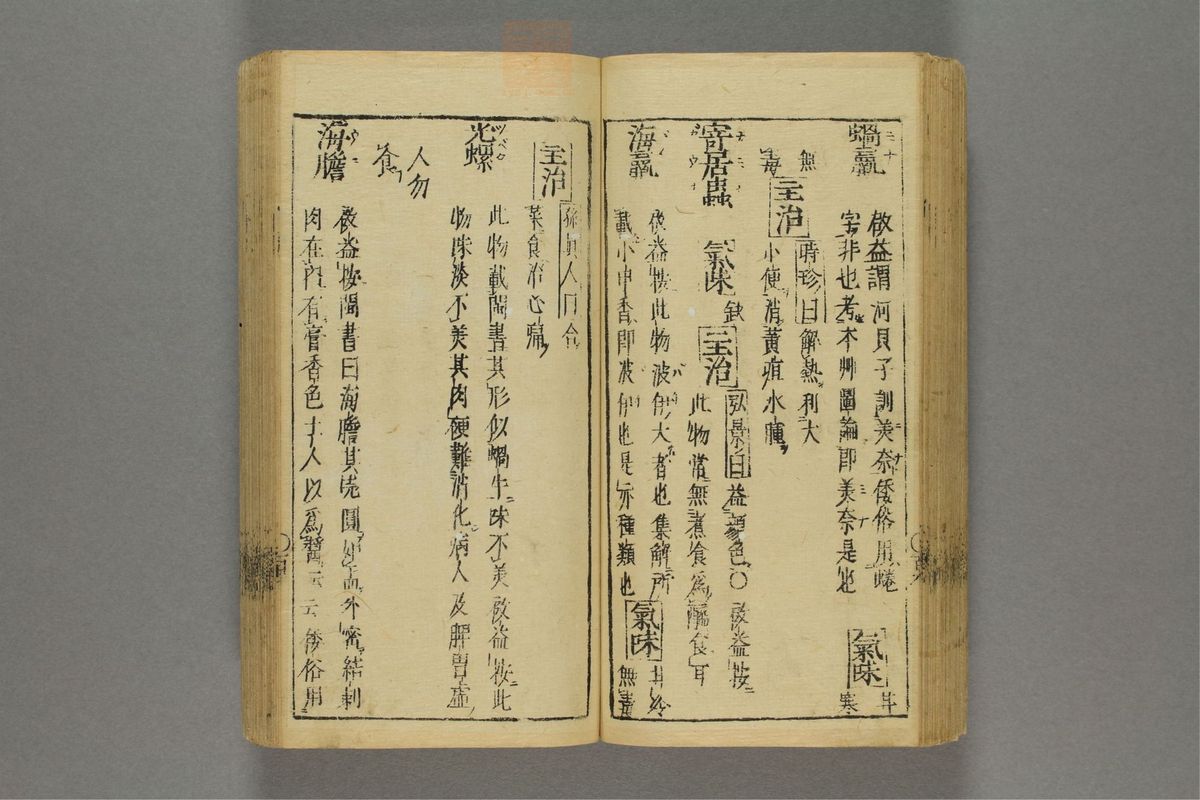 蝸蠃 啟益謂河貝子訓美奈倭俗用蜷 氣味 甘
字非也考本艸圖論即美奈是也 寒
無
毒 主治 時珍曰解熱利大
小便消黃疸水腫
寄居蟲 氣味 缺 主治 弘景曰益顏色〇啟益按
此物常無煮食為醢食耳
海蠃 啟益按此物波伊大者也集解所
載小甲香即波伊也是亦種類也 氣味 甘冷
無毒
主治 孫真人曰合
菜食治心痛
光螺 此物載閩書其形似蝸牛味不美啟益按此
物味淡不美其肉硬難消化病人及脾胃虛
人勿
食
海膽 啟益按閩書曰海膽其壳圓如盂外密結刺
肉在內有膏香色土人以為醬云云倭俗用